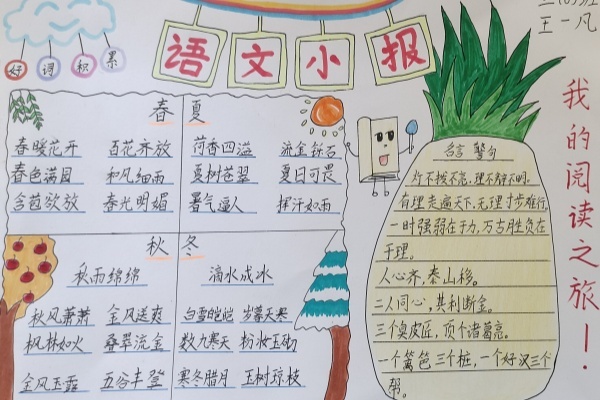 语文小报
三(6)班
王一凡
好词积累
春
春暖花开 百花齐放
春色满园 和风细雨
含苞欲放 春光明媚
夏
荷香四溢 流金铄石
夏树苍翠 夏日可畏
暑气逼人 挥汗如雨
秋
秋雨绵绵
秋风萧萧 金风送爽
枫林如火 叠翠流金
金风玉露 五谷丰登
冬
滴水成冰
白雪皑皑 岁暮天寒
数九寒天 粉妆玉砌
寒冬腊月 玉树琼枝
名言警句
灯不拨不亮,理不辩不明。
有理走遍天下,无理寸步难行。
一时强弱在于力,万古胜负在
于理。
人心齐,泰山移。
二人同心,其利断金。
三个臭皮匠,顶个诸葛亮。
一个篱笆三个桩,一个好汉三个
帮。
我的阅读之旅!